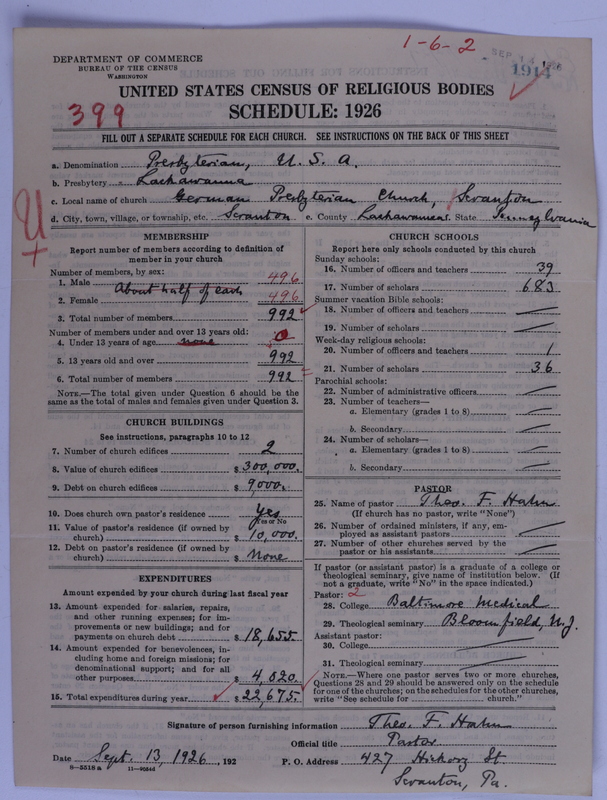 1-6-2
SEP 14 1926
1914
DEPARTMENT OF COMMERCE
BUREAU OF THE CENSUS
WASHINGTON
UNITED STATES CENSUS OF RELIGIOUS BODIES
399
SCHEDULE: 1926
FILL OUT A SEPARATE SCHEDULE FOR EACH CHURCH. SEE INSTRUCTIONS ON THE BACK OF THIS SHEET
a. Denomination Presbyterian, U. S. A.
b. Presbytery Lackawanna
c. Local name of church German Presbyterian Church, Scranton
d. City, town, village, or township, etc. Scranton e. County Lackawanna State Pennsylvania
U
MEMBERSHIP
Report number of members according to definition of
member in your church
Number of members, by sex:
1. Male 496
About half of each
2. Female 496
3. Total number of members 992
Number of members under and over 13 years old:
4. Under 13 years of age none 0
5. 13 years old and over 992
6. Total number of members 992
NOTE.—The total given under Question 6 should be
the same as the total of males and females given under Question 3.
CHURCH BUILDINGS
See instructions, paragraphs 10 to 12
7. Number of church edifices 2
8. Value of church edifices $ 300,000.
9. Debt on church edifices $ 9,000.
10. Does church own pastor's residence Yes
Yes or No
11. Value of pastor's residence (if owned by
church) $ 10,000.
12. Debt on pastor's residence (if owned by
church) $ None
EXPENDITURES
Amount expended by your church during last fiscal year
13. Amount expended for salaries, repairs,
and other running expenses; for im-
provements or new buildings; and for
payments on church debt $ 18,655
14. Amount expended for benevolences, in-
cluding home and foreign missions; for
denominational support; and for all
other purposes $ 4,020
15. Total expenditures during year $ 22,675.
CHURCH SCHOOLS
Report here only schools conducted by this church
Sunday schools:
16. Number of officers and teachers 39
17. Number of scholars 683
Summer vacation Bible schools:
18. Number of officers and teachers
19. Number of scholars
Week-day religious schools:
20. Number of officers and teachers 1
21. Number of scholars 36
Parochial schools:
22. Number of administrative officers
23. Number of teachers—
a. Elementary (grades 1 to 8)
b. Secondary
24. Number of scholars—
a. Elementary (grades 1 to 8)
b. Secondary
PASTOR
25. Name of pastor Theo. F. Hahn
(If church has no pastor, write "None")
26. Number of ordained ministers, if any, em-
ployed as assistant pastors
27. Number of other churches served by the
pastor or his assistants
If pastor (or assistant pastor) is a graduate of a college or
theological seminary, give name of institution below. (If
not a graduate, write "No" in the space indicated.)
Pastor: 2
28. College Baltimore Medical
29. Theological seminary Bloomfield, N.J.
Assistant pastor:
30. College
31. Theological seminary
NOTE.—Where one pastor serves two or more churches,
Questions 28 and 29 should be answered only on the schedule
for one of the churches; on the schedules for the other churches,
write "See schedule for church."
Signature of person furnishing information Theo. F. Hahn
Official title Pastor
Date Sept. 13, 1926, 192 P. O. Address 427 Hickory St
8—5518 a
Scranton, Pa.